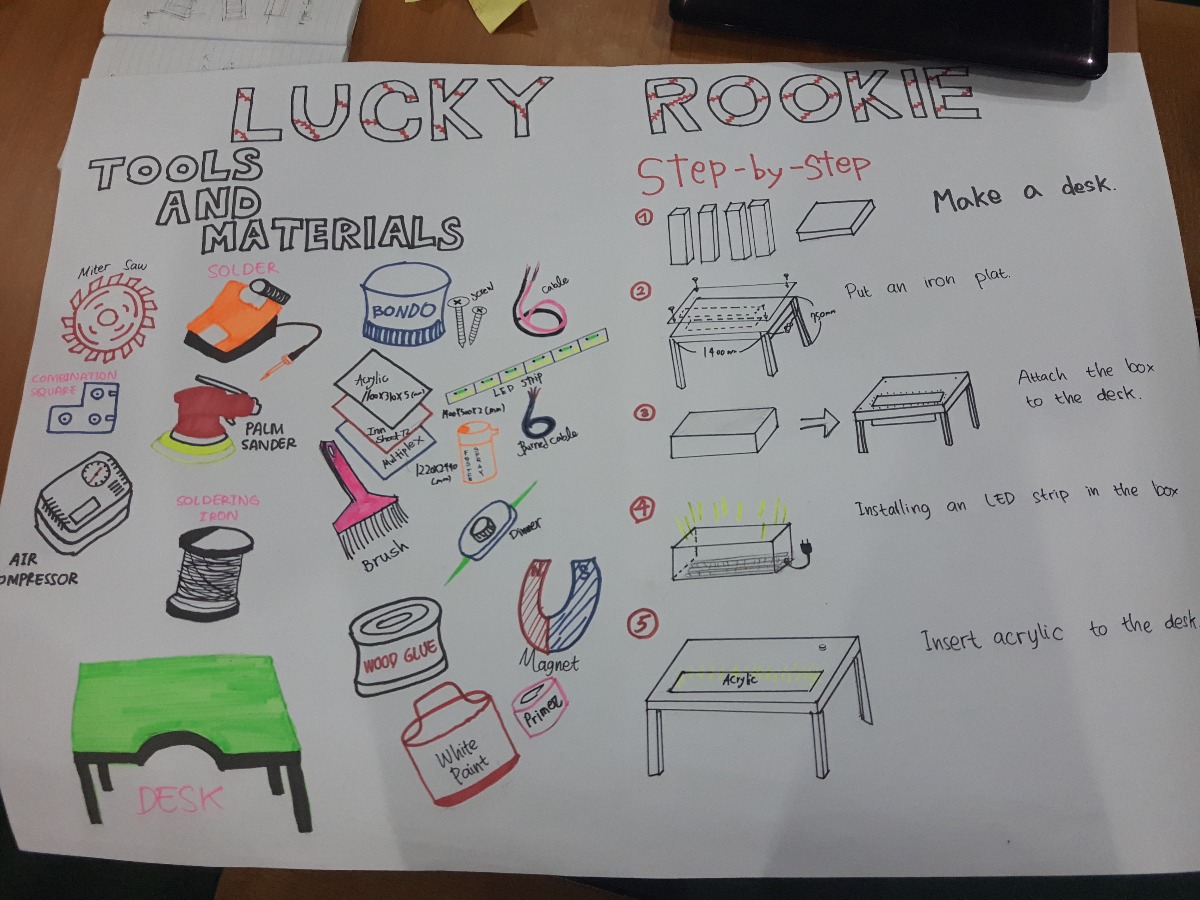 LUCKY ROOKIE
TOOLS
AND
MATERIALS
Miter Saw
SOLDER
BONDO
screw
cable
COMBINATION
SQUARE
PALM
SANDER
Acrylic
Iron
Multiplex
1220x2440
(mm)
LED STRIP
cable
AIR
OMPRESSOR
SOLDERING
IRON
Brush
Dimmer
WOOD GLUE
N S
Magnet
Primer
White
Paint
DESK
Step-by-Step
1 Make a desk.
2 Put an iron plat.
750mm
1400mm
3 Attach the box
to the desk.
4 Installing an LED strip in the box
5 Insert acrylic to the desk.
Acrylic